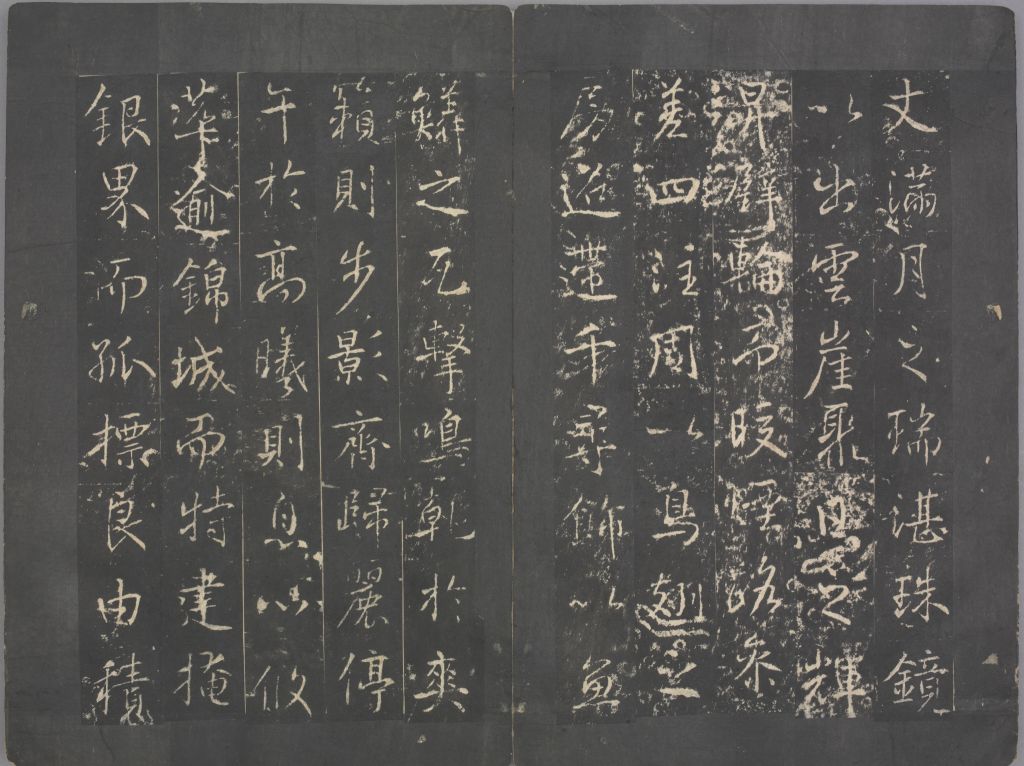 丈滿月之瑞湛珠鏡
以出雲崖聚日之輝
昇璧輪而皎煙路參
差四注周以鳥翅之
房迢遰千尋飾以魚
鱗之瓦擊鳴乾於爽
籟則步影齊歸麗停
午於高曦則息心攸
萃逾錦城而特建掩
銀界而孤標良由積